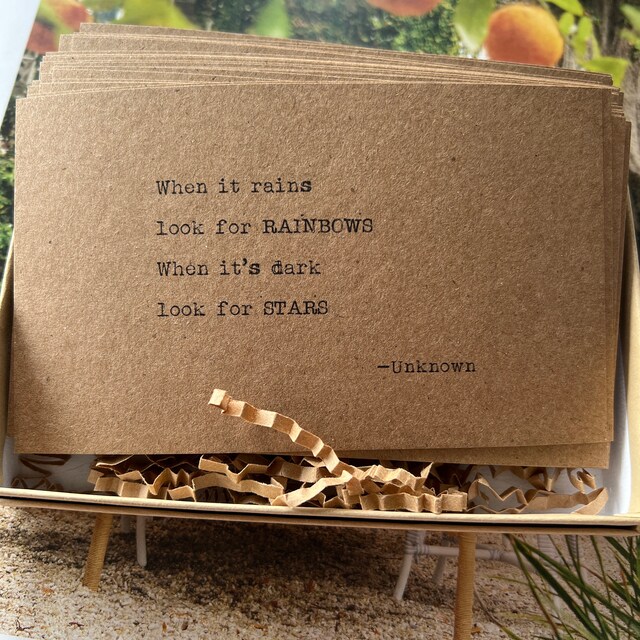 When it rains
look for RAINBOWS
When it's dark
look for STARS
—Unknown